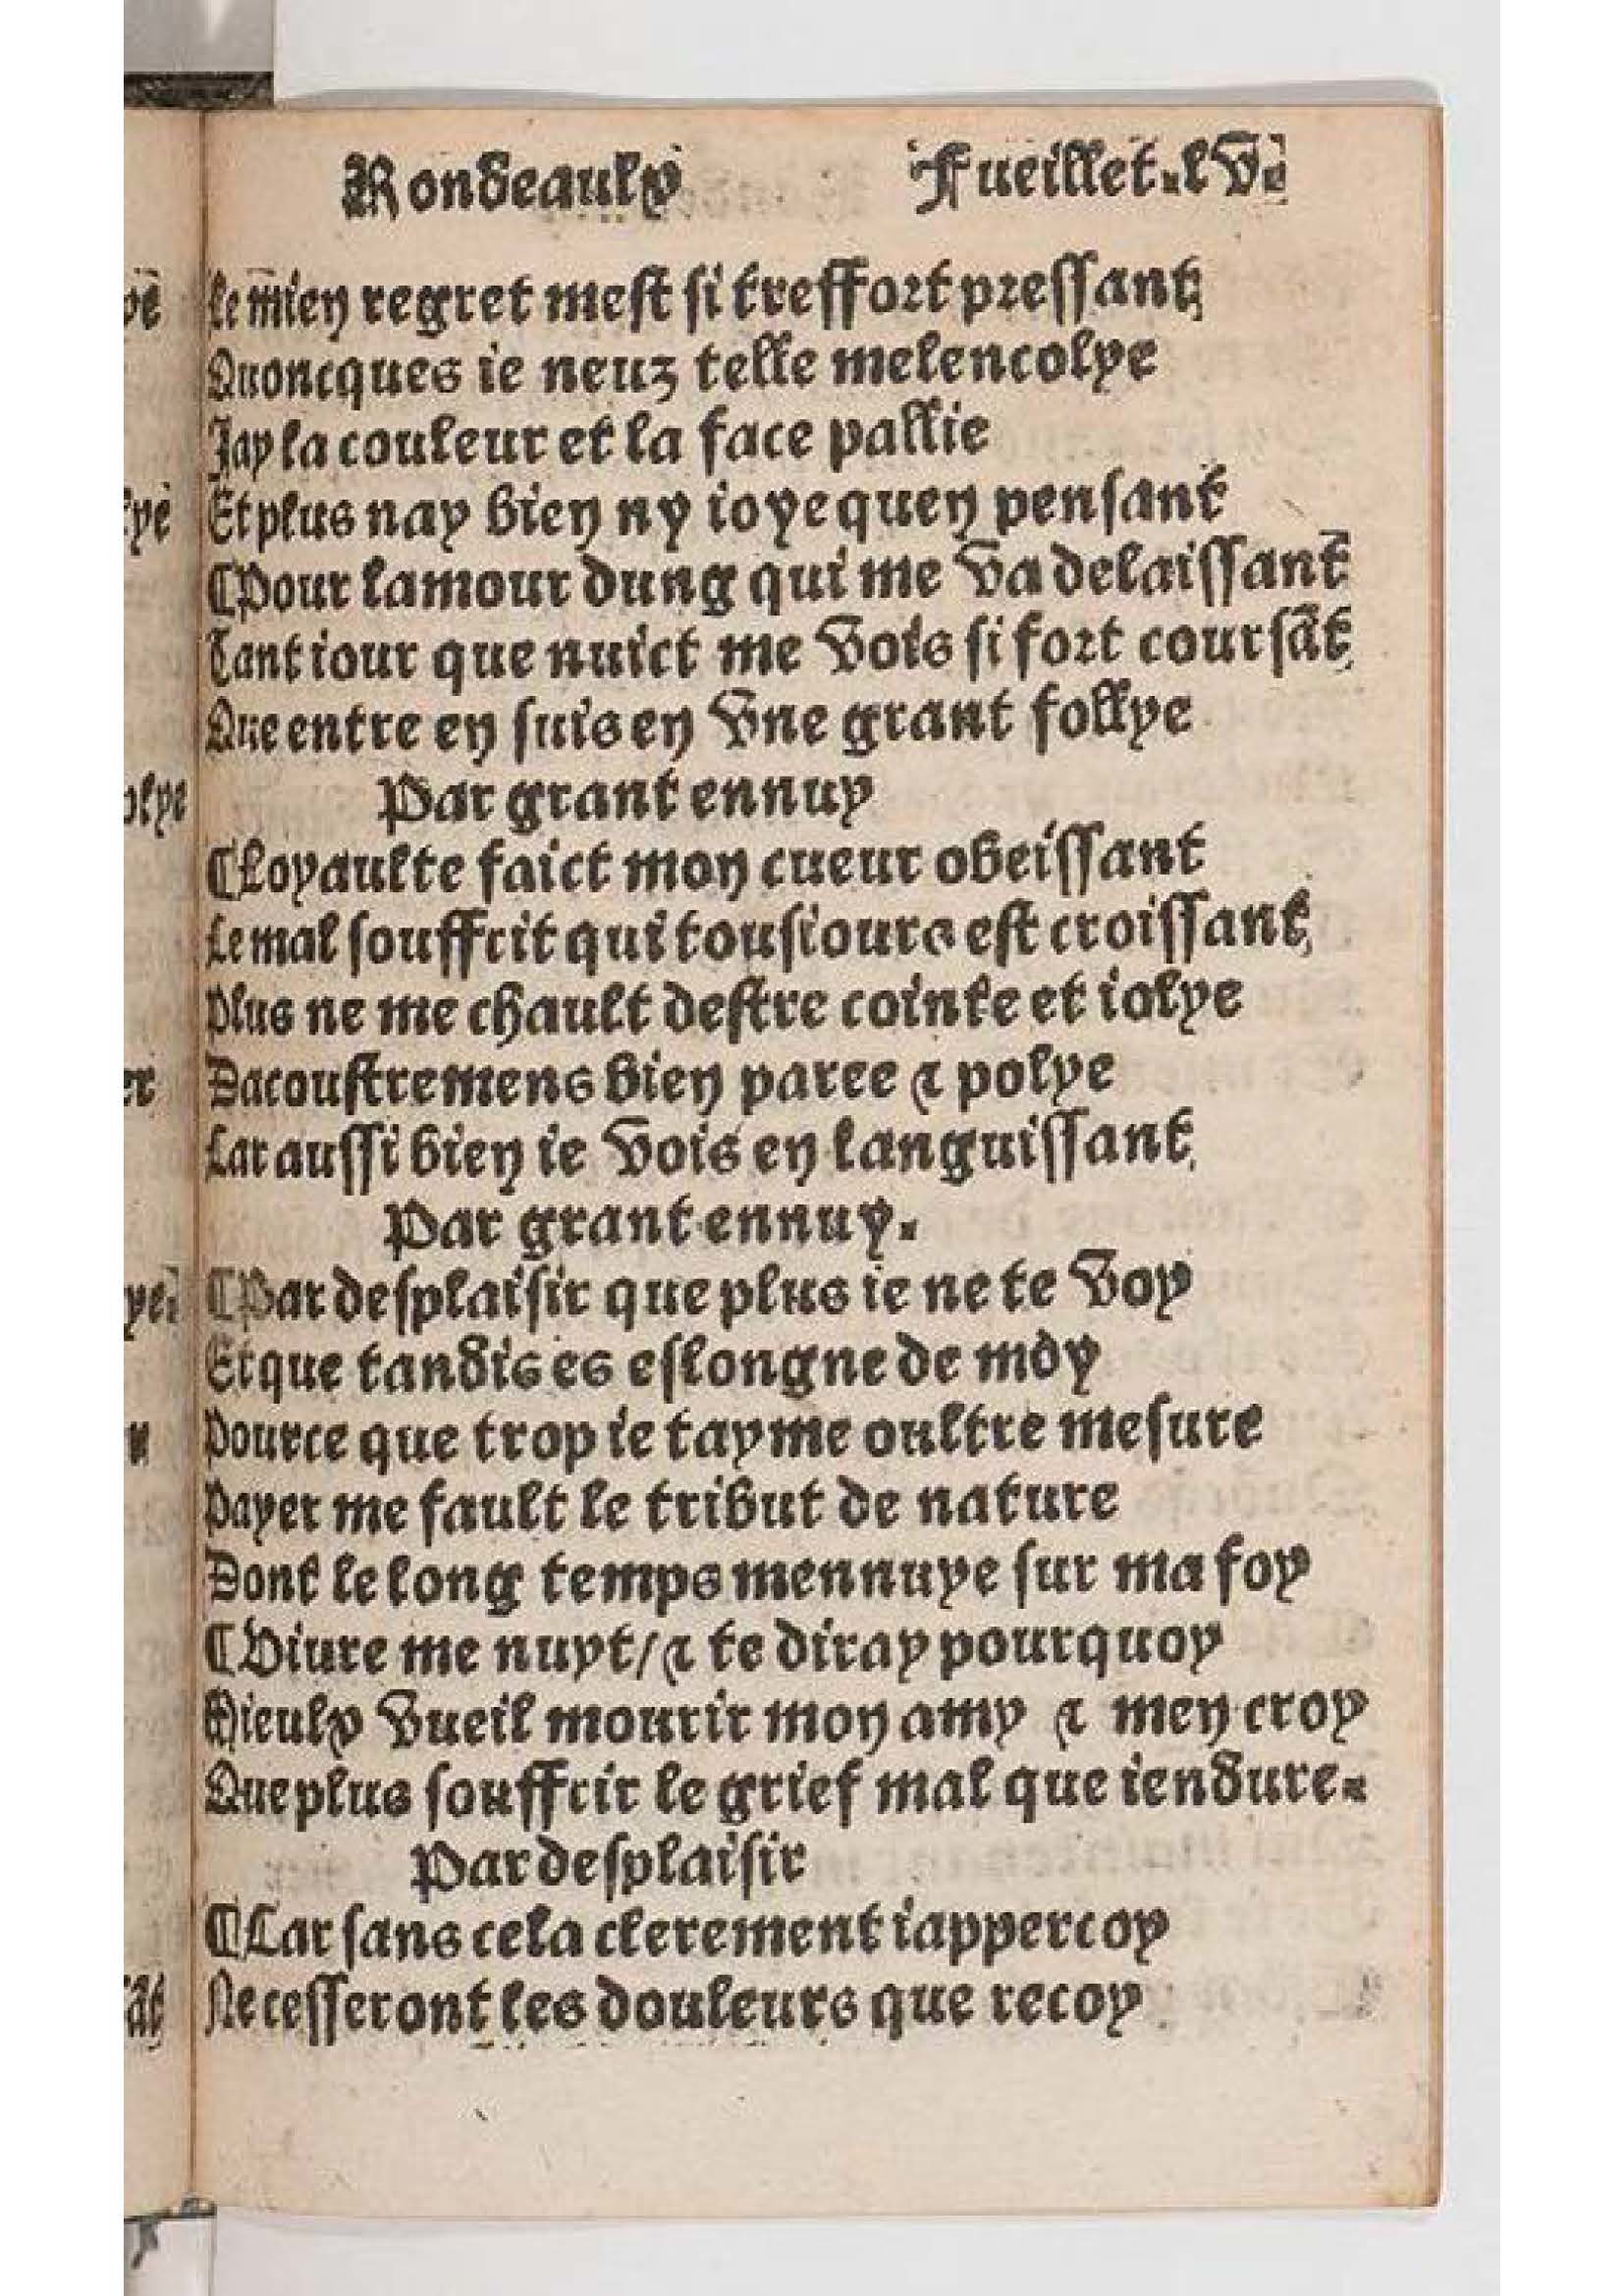 Rondeaulx Fueillet.lv.
Le mien regret mest si treffort pressant
Quoncques ie neuz telle melencolye
Jay la couleur et la face pallie
Et plus nay bien ny ioye quen pensant
¶Pour lamour dung qui me va delaissant
Tant iour que nuict me vois si fort coursãt
Que entre en suis en vne grant follye
Par grant ennuy
¶Loyaulte faict mon cueur obeissant
Le mal souffrit qui tousiours est croissant
Plus ne me chault destre cointe et iolye
Dacoustremens bien paree & polye
Car aussi bien ie vois en languissant
Par grant ennuy.
¶Par desplaisir que plus ie ne te voy
Et que tandis es eslongne de moy
Pource que trop ie tayme oultre mesure
Payer me fault le tribut de nature
Dont le long temps mennuye sur ma foy
¶Viure me nuyt/& te diray pourquoy
Mieulx vueil mourir mon amy & men croy
Que plus souffrir le grief mal que iendure.
Par desplaisir
¶Car sans cela clerement iappercoy
Ne cesseront les douleurs que recoy